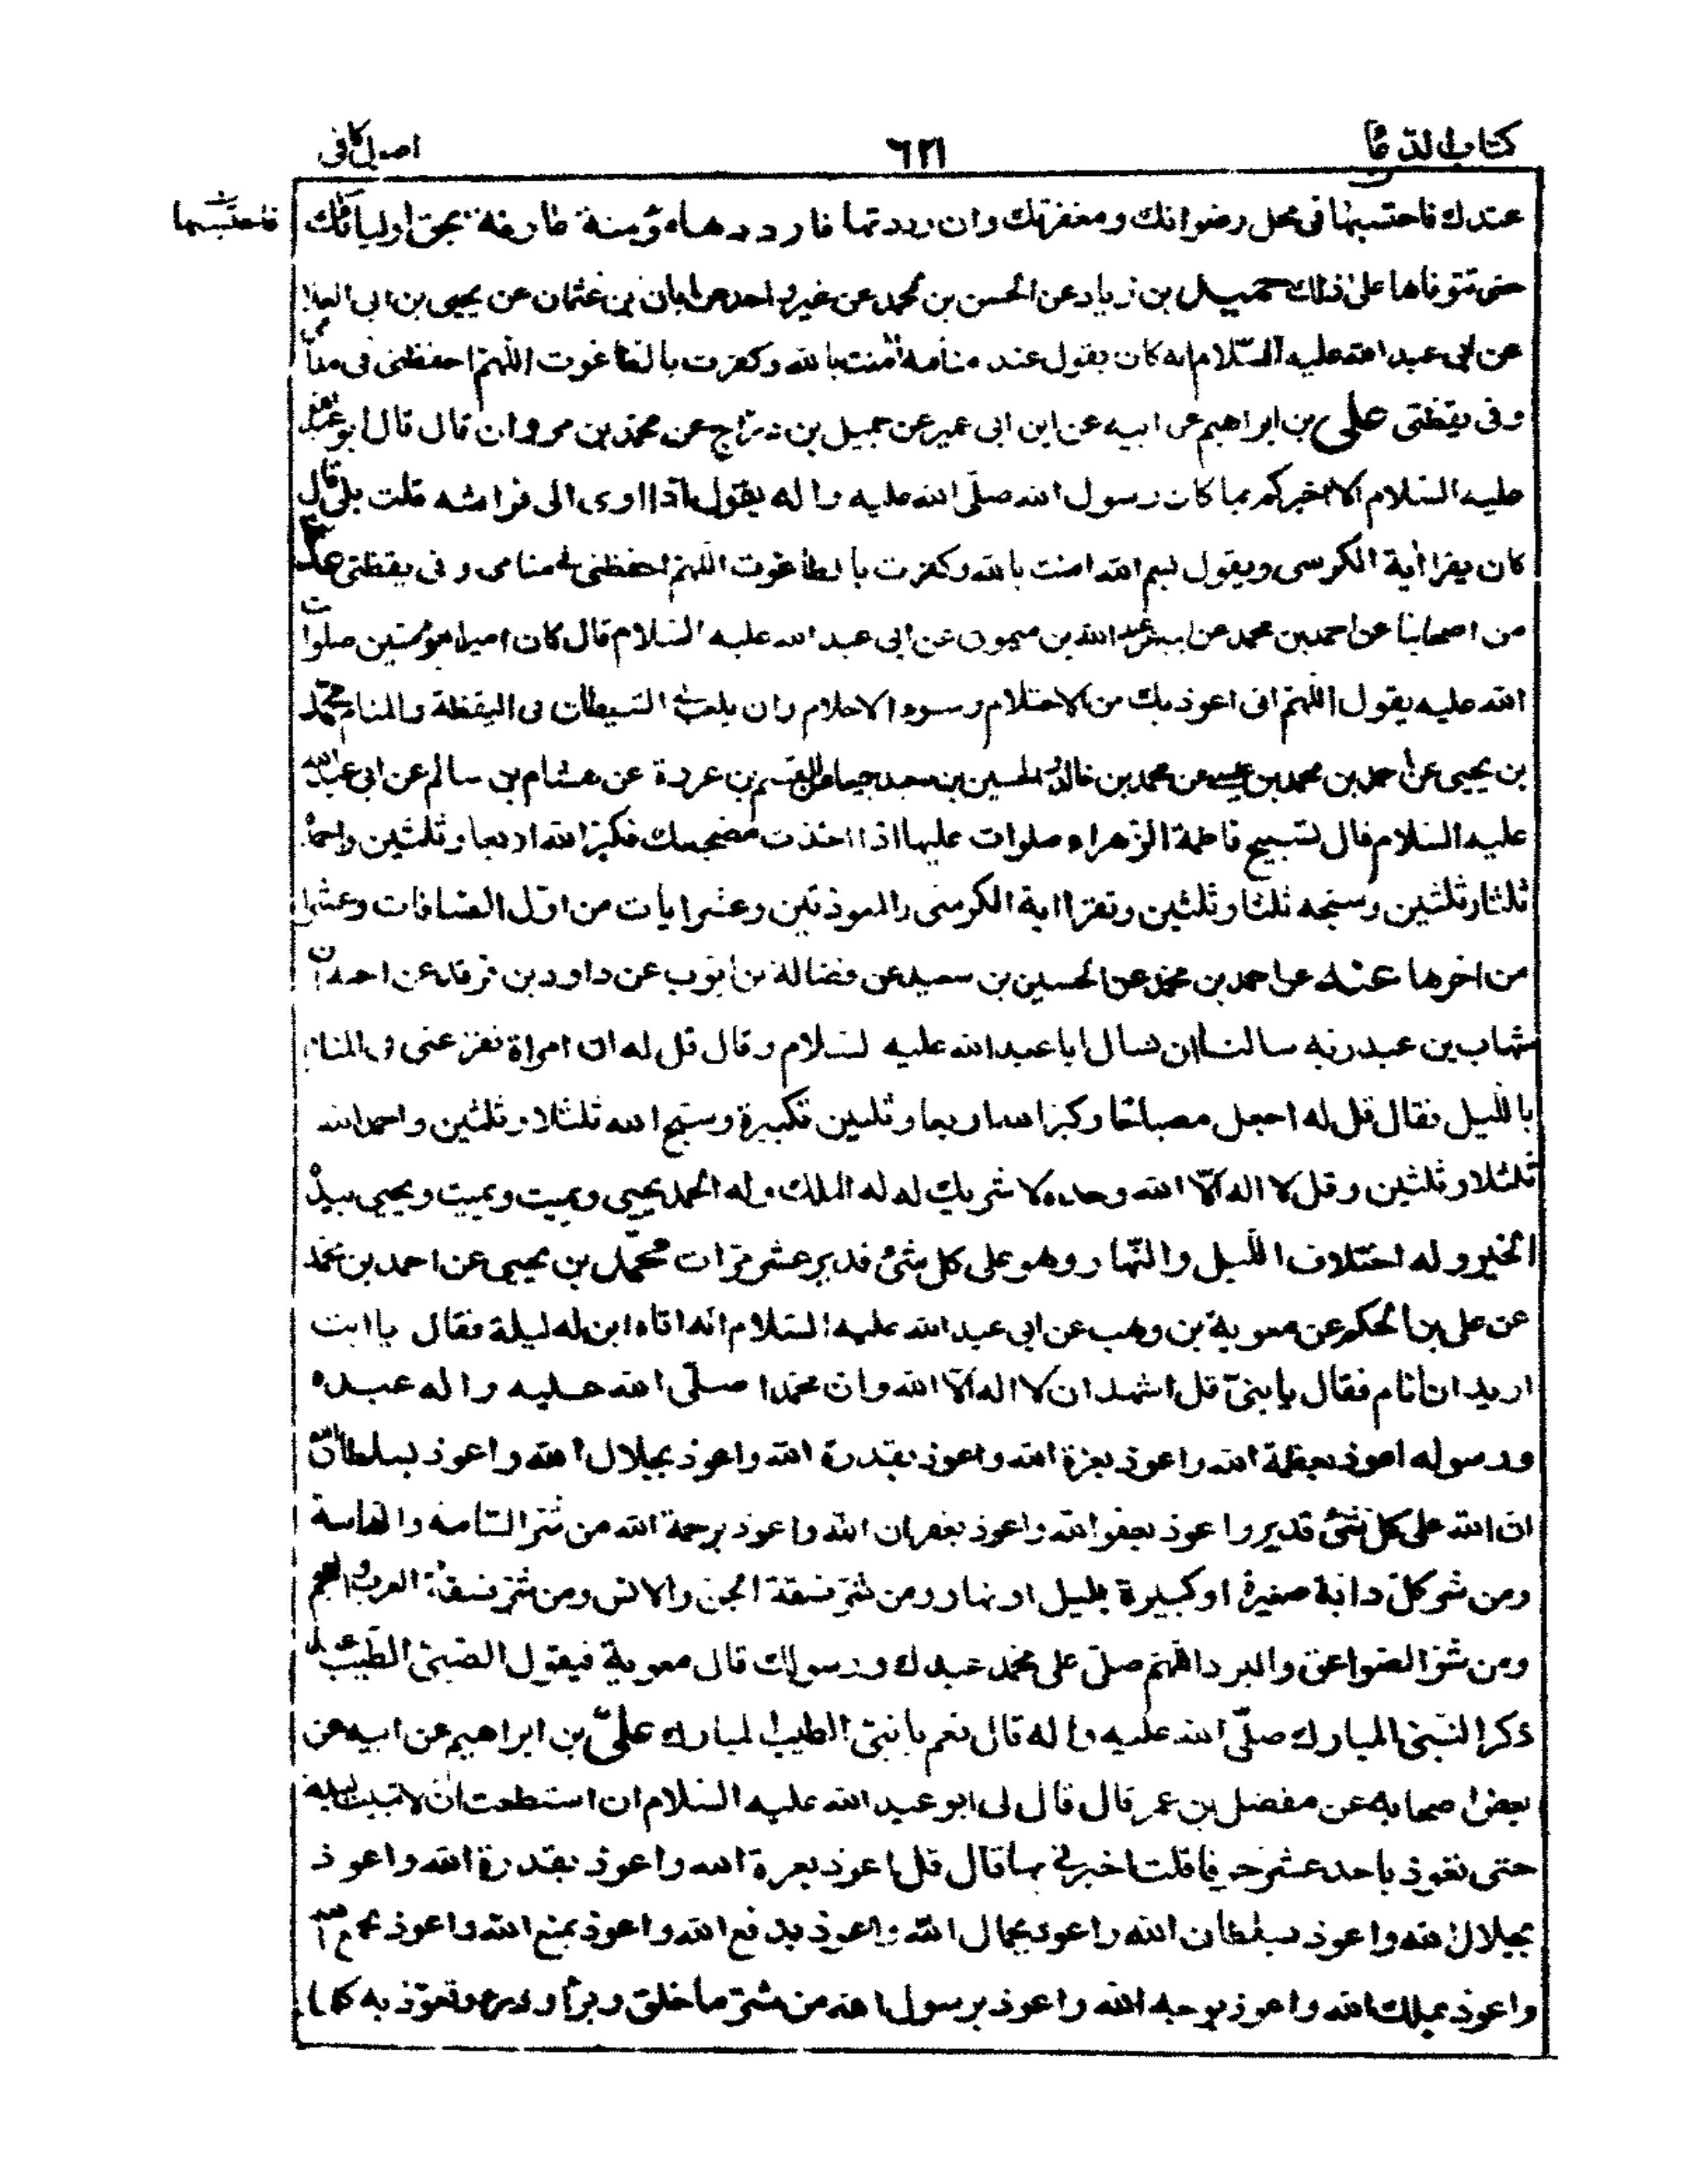 كتاب الدعا ٦٢١ اصول كافى
عندك فاحتسبها فى محل رضوانك ومغفرتك وان رددتها فارددها مؤمنة عارفة بحق اوليائك
فاحتسبها
حتى تتوفاها على ذلك حميد بن زياد عن الحسن بن محمد عن غير واحد عن ابان بن عثمان عن يحيى بن ابى العلا
عن ابى عبد الله عليه السّلام انه كان يقول عند منامه امنت بالله وكفرت بالطاغوت اللّهمّ احفظنى فى منامى
وفى يقظتى على بن ابراهيم عن ابيه عن ابن ابى عمير عن جميل بن درّاج عن محمّد بن مروان قال قال ابو عبد الله
عليه السّلام الا اخبركم بما كان رسول الله صلّى الله عليه واله يقول اذا اوى الى فراشه قلت بلى قال
كان يقرا اية الكرسى ويقول بسم الله امنت بالله وكفرت بالطاغوت اللّهمّ احفظنى فى منامى وفى يقظتى عدة
من اصحابنا عن احمد بن محمد عن ابيه عن عبد الله بن ميمون عن ابى عبد الله عليه السّلام قال كان امير المؤمنين صلوات
الله عليه يقول اللّهمّ انى اعوذ بك من الاحتلام وسوء الاحلام وان يلعب بى الشيطان فى اليقظة والمنام محمّد
بن يحيى عن احمد بن محمد بن عيسى عن محمد بن خالد والحسين بن سعيد جميعا عن القسم بن عروة عن هشام بن سالم عن ابى عبد الله
عليه السّلام قال تسبيح فاطمة الزهراء صلوات عليها اذا اخذت مضجعك فكبّر الله اربعا وثلثين واحمده
ثلثا وثلثين وسبّحه ثلثا وثلثين وتقرا اية الكرسى والمعوذتين وعشر ايات من اوّل الصّافات وعشرا
من اخرها عنه عن احمد بن محمد عن الحسين بن سعيد عن فضالة بن ايوب عن داود بن فرقد عن اخيه ان
شهاب بن عبد ربه سالنا ان نسال ابا عبد الله عليه لسّلام وقال قل له ان امراة تفزعنى فى المنام
بالليل فقال قل له اجعل مصباحا وكبّر الله اربعا وثلثين تكبيرة وسبّح الله ثلثا وثلثين واحمد الله
ثلثا وثلثين وقل لا اله الّا الله وحده لا شريك له له الملك وله الحمد يحيى ويميت ويميت ويحيى بيده
الخير وله اختلاف اللّيل والنّهار وهو على كل شئ قدير عشر مرّات محمّد بن يحيى عن احمد بن محمّد
عن على بن الحكم عن معوية بن وهب عن ابى عبد الله عليه السّلام انه اتاه ابن له ليلة فقال يا ابت
اريد ان انام فقال يا بنىّ قل اشهد ان لا اله الّا الله وان محمّدا صلّى الله عليه واله عبده
ورسوله اعوذ بعظمة الله واعوذ بعزة الله واعوذ بقدرة الله واعوذ بجلال الله واعوذ بسلطان الله
ان الله على كل شئ قدير واعوذ بعفو الله واعوذ بغفران الله واعوذ برحمة الله من شر السّامة والهامة
ومن شر كل دابة صغيرة او كبيرة بليل او نهار ومن شرّ فسقة الجن والانس ومن شرّ فسقة العرب والعجم
ومن شرّ الصّواعق والبرد اللّهمّ صلّ على محمّد عبدك ورسولك قال معوية فيقول الصّبى الطّيّب عند
ذكر النّبىّ المبارك صلّى الله عليه واله قال نعم يا بنىّ الطيب المبارك علىّ بن ابراهيم عن ابيه عن
بعض اصحابه عن مفضل بن عمر قال قال لى ابو عبد الله عليه السّلام ان استطعت ان لا تبيت ليلة
حتى تعوّذ باحد عشر حرفا قلت اخبرنى بها قال قل اعوذ بعزة الله واعوذ بقدرة الله واعوذ
بجلال الله واعوذ بسلطان الله واعوذ بجمال الله واعوذ بدفع الله واعوذ بمنع الله واعوذ بجمع الله
واعوذ بملك الله واعوذ بوجه الله واعوذ برسول الله من شرّ ما خلق وبرأ وذرء وتعوّذ به كلما